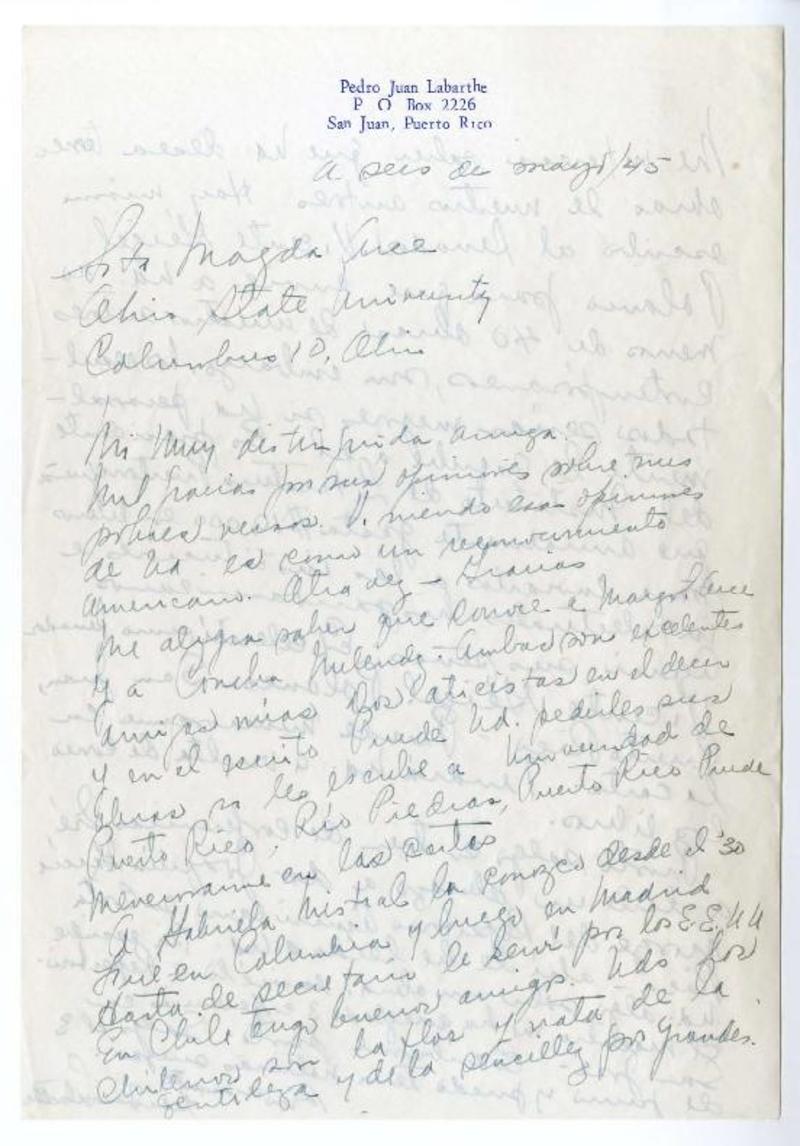 Pedro Juan Labarthe
P. O. Box 2226
San Juan, Puerto Rico
a seis de mayo/45
Srta Magda Arce
Ohio State University
Columbus 10, Ohio
Mi muy distinguida amiga:
Mil gracias por sus opiniones sobre mis
pobres versos. Y, siendo esas opiniones
de Ud. es como un reconocimiento
americano. Otra vez – gracias
Me alegra saber que conoce a Margot Arce
y a Concha Meléndez. Ambas son excelentes
amigas mías. Dos aticistas en el decir
y en el escrito. Puede Ud. pedirles sus
obras si les escribe a Universidad de
Puerto Rico, Río Piedras, Puerto Rico. Puede
mencionarme en las cartas
A Gabriela Mistral la conozco desde el '30
fue en Columbia y luego en Madrid
Hasta de secretario le serví por los E.E.U.U
En Chile tengo buenos amigos. Uds los
chilenos son la flor y nata de la
gentileza y de la sencillez por grandes.